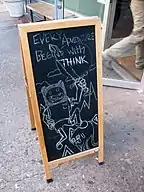 EVERY ADVENTURE
BEGINS WITH
THINK